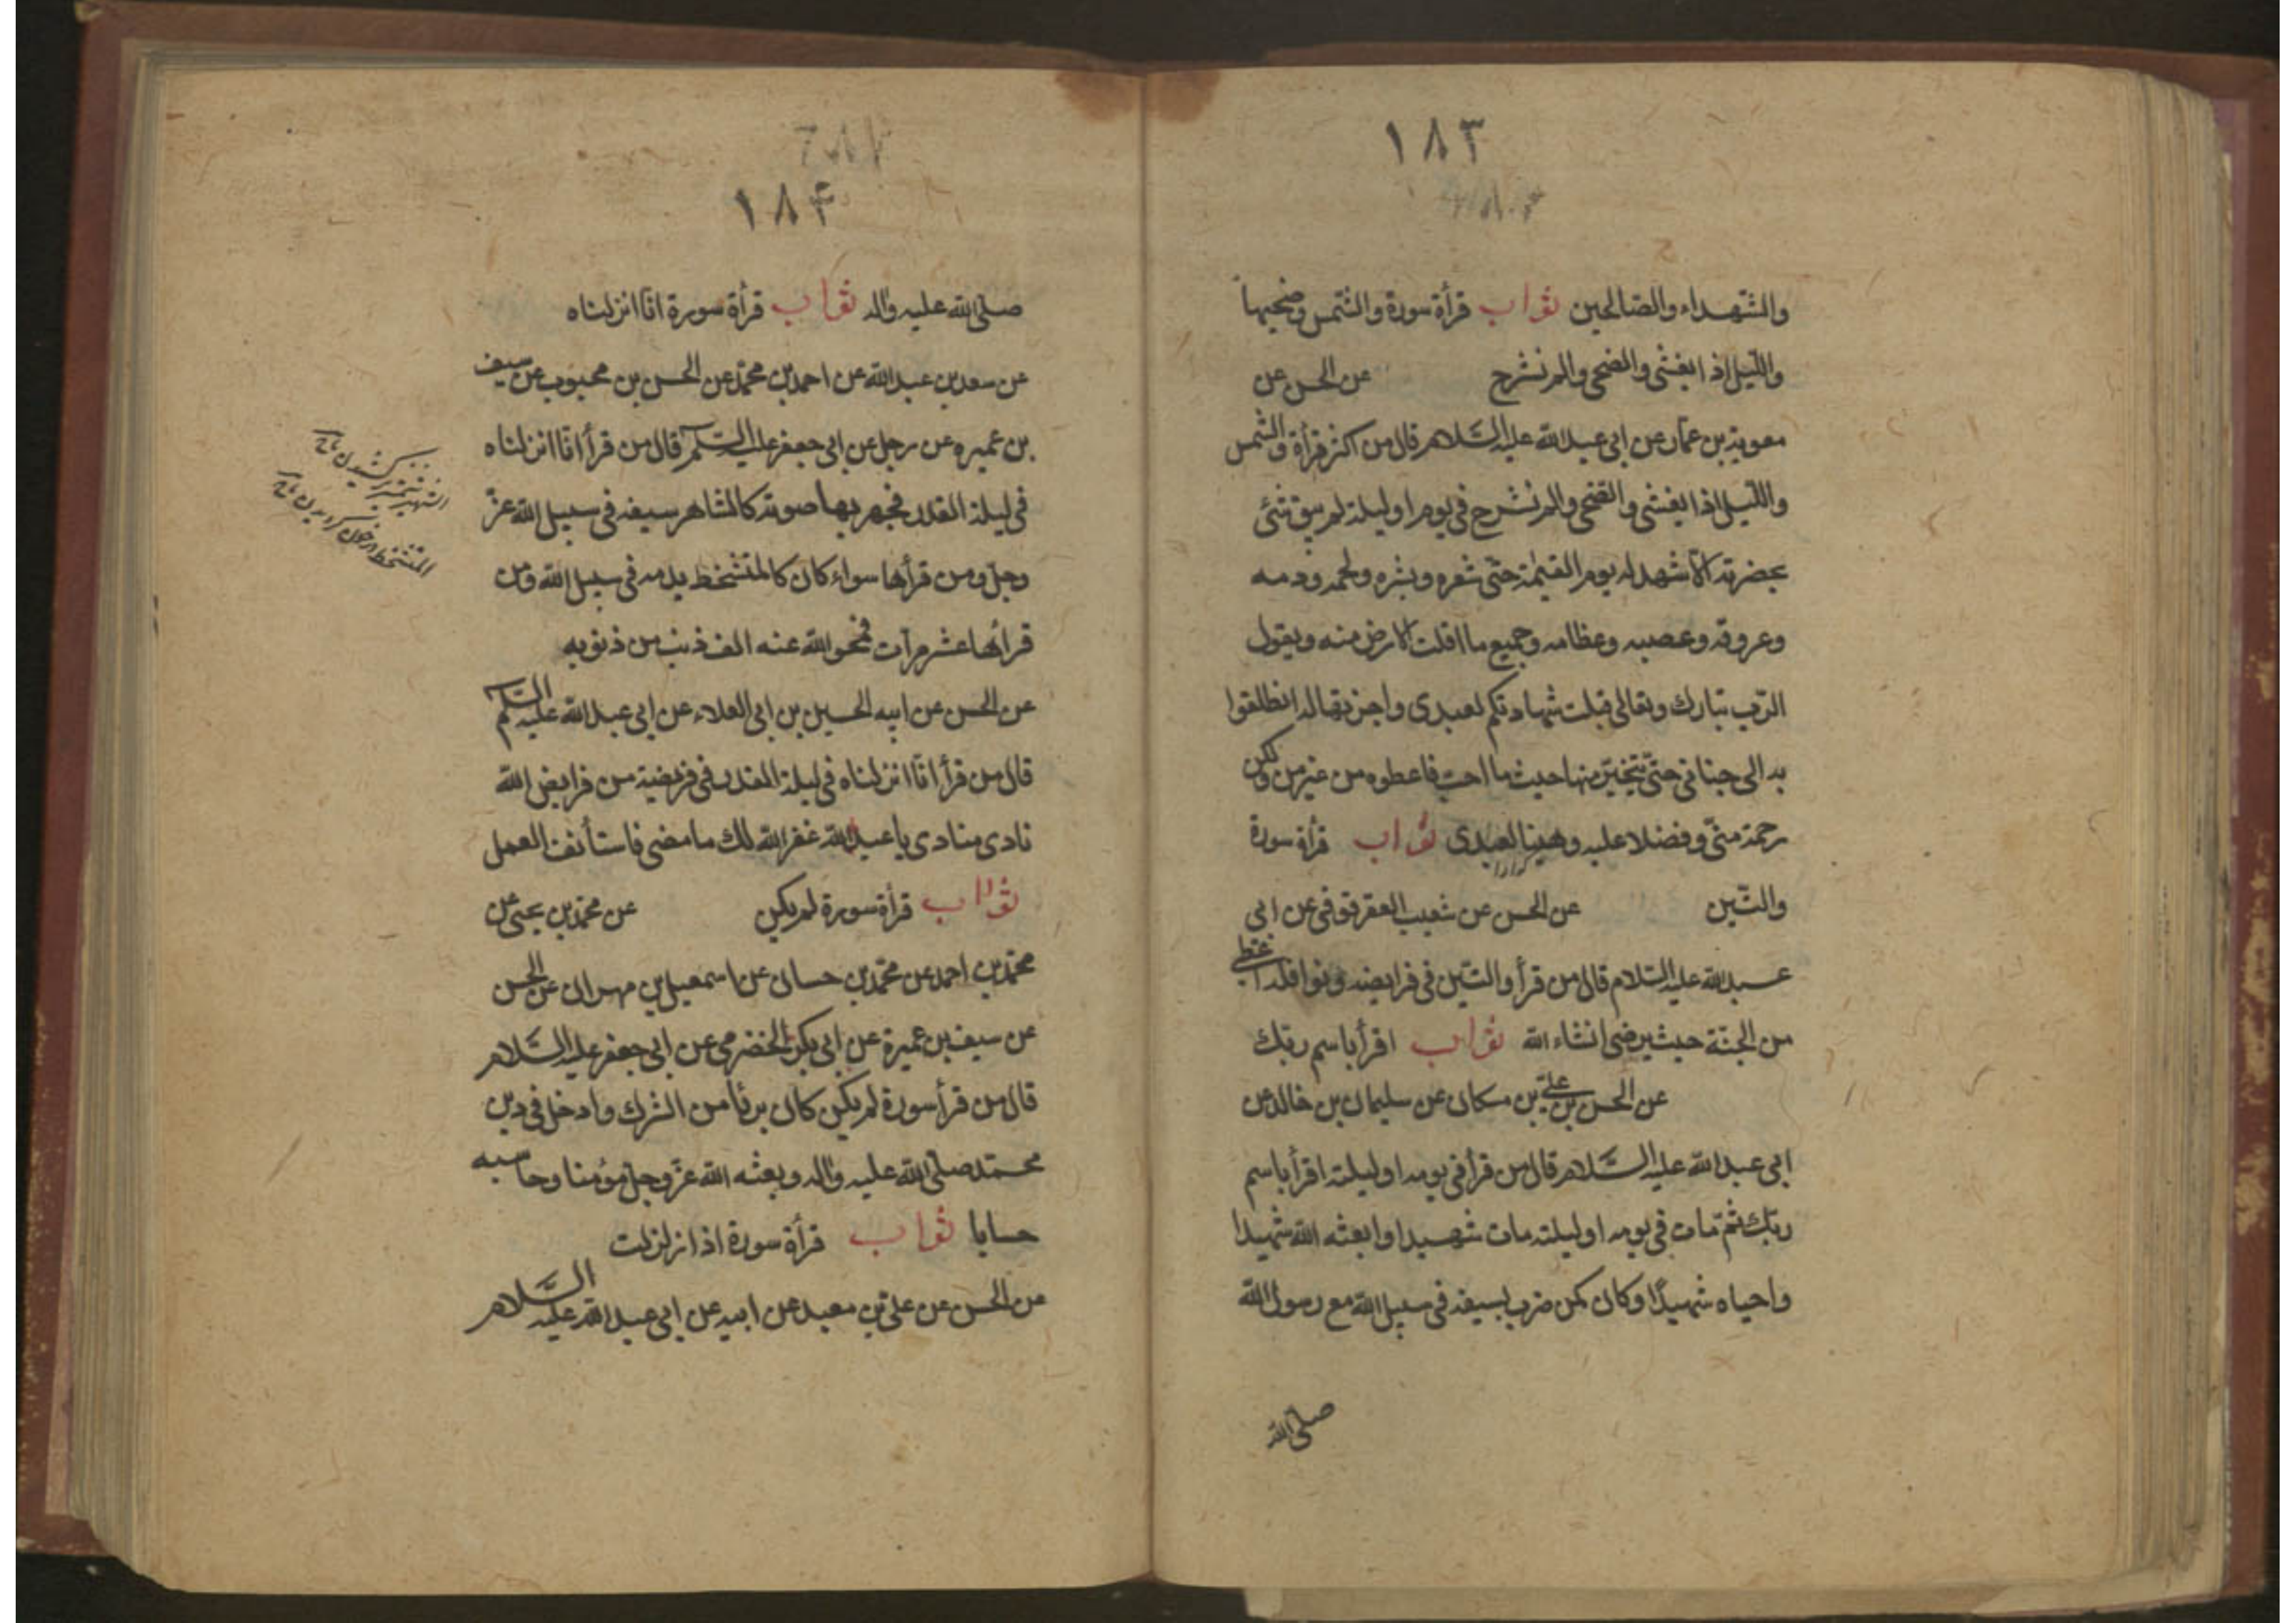 ١٨٣
والشّهداء والصّالحين ثواب قرأة سورة والشّمس وضحيها
واللّيل اذا يغشى والضحى والم نشرح عن الحسن عن
معوية بن عمّار عن ابى عبد الله عليه السّلام قال من اكثر قرأة والشّمس
واللّيل اذا يغشى والضّحى والم نشرح فى يوم او ليلة لم يبق شئ
بحضرته الّا شهد له يوم القيٰمة حتّى شعره وبشره ولحمه ودمه
وعروقه وعصبه وعظامه وجميع ما اقلت الارض منه ويقول
الرّب تبارك وتعالى قبلت شهادتكم لعبدى واجزتها له انطلقوا
به الى جنانى حتّى يتخيّر منها حيث ما احبّ فاعطوه من غير من ولكن
رحمة منّى وفضلا عليه وهنيئا لعبدى ثواب قرأة سورة
والتّين عن الحسن عن شعيب العقرقوفى عن ابى
عبد الله عليه السّلام قال من قرأ والتّين فى فرايضه ونوافله اعطى
من الجنّة حيث يرضى انشاء الله ثواب اقرأ باسم ربّك
عن الحسن بن علىّ بن مسكان عن سليمان بن خالد عن
ابى عبد الله عليه السّلام قال من قرأ فى يومه او ليلته اقرأ باسم
ربّك ثمّ مات فى يومه او ليلته مات شهيدا وابعثه الله شهيدا
واحياه شهيدًا وكان كمن ضرب بسيفه فى سبيل الله مع رسول الله
صلّى الله
١٨٤
صلّى الله عليه واٰله ثواب قرأة سورة انّا انزلناه
عن سعد بن عبد الله عن احمد بن محمّد عن الحسن بن محبوب عن سيف
بن عميره عن رجل عن ابى جعفر عليه السّلم قال من قرأ انّا انزلناه
فى ليلة القدر فجهر بها صوته كالشاهر سيفه فى سبيل الله عزّ
وجلّ ومن قرأها سواء كان كالمتشخط بدمه فى سبيل الله ومن
قرأها عشر مرّات فمحو الله عنه الف ذنب من ذنوبه
عن الحسن عن ابيه الحسين بن ابى العلاء عن ابى عبد الله عليه السّلم
قال من قرأ انّا انزلناه فى ليلة القدر فى فريضة من فرايض الله
نادى منادى يا عبد الله غفر الله لك ما مضى فاستأنف العمل
ثواب قرأة سورة لم يكن عن محمّد بن يحيى عن
محمّد بن احمد عن محمّد بن حسان عن اسمعيل بن مهران عن الحسن
عن سيف بن عميرة عن ابى بكر الحضرمى عن ابى جعفر عليه السّلام
قال من قرأ سورة لم يكن كان برئا من الشرك وادخل فى دين
محمّد صلّى الله عليه واٰله وبعثه الله عزّ وجلّ مؤمنا وحاسبه
حسابا ثواب قرأة سورة اذا زلزلت
عن الحسن عن علىّ بن معبد عن ابيه عن ابى عبد الله عليه السّلام